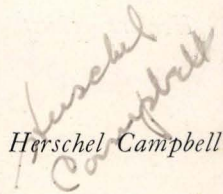 Herschel
Campbell
Herschel Campbell